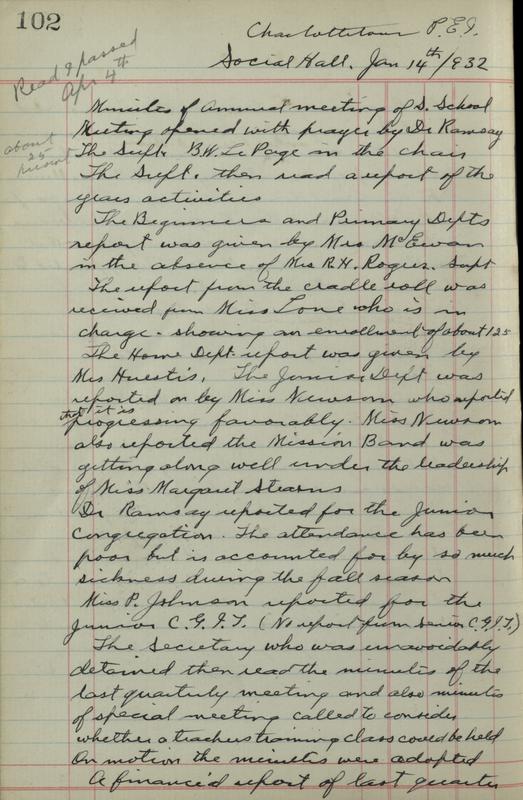 102
Charlottetown P.E.I.
Social Hall. Jan 14th/932
Read & passed
Apr 4th
Minutes of annual meeting of S. School
Meeting opened with prayer by Dr Ramsay
about
25
present
The Supt. B.W. LePage in the chair
The Supt. then read a report of the
years activities
The Beginners and Primary Depts
report was given by Mrs McEwan
in the absence of Mrs R.H. Rogers. Supt
The report from the cradle roll was
received from Miss Lowe who is in
charge - showing an enrollment of about 125
The Home Dept. report was given by
Mrs Huestis. The Junior Dept was
reported on by Miss Newsom who reported
that it is
progressing favorably. Miss Newsom
also reported the Mission Band was
getting along well under the leadership
of Miss Margaret Stearns
Dr Ramsay reported for the Junior
Congregation. The attendance has been
poor but is accounted for by so much
sickness during the fall season
Miss P. Johnson reported for the
Junior C.G.I.T. (No report from Senior C.G.I.T.)
The Secretary who was unavoidably
detained then read the minutes of the
last quarterly meeting and also minutes
of special meeting called to consider
whether a teachers training class could be held
On motion the minutes were adopted
A financial report of last quarter